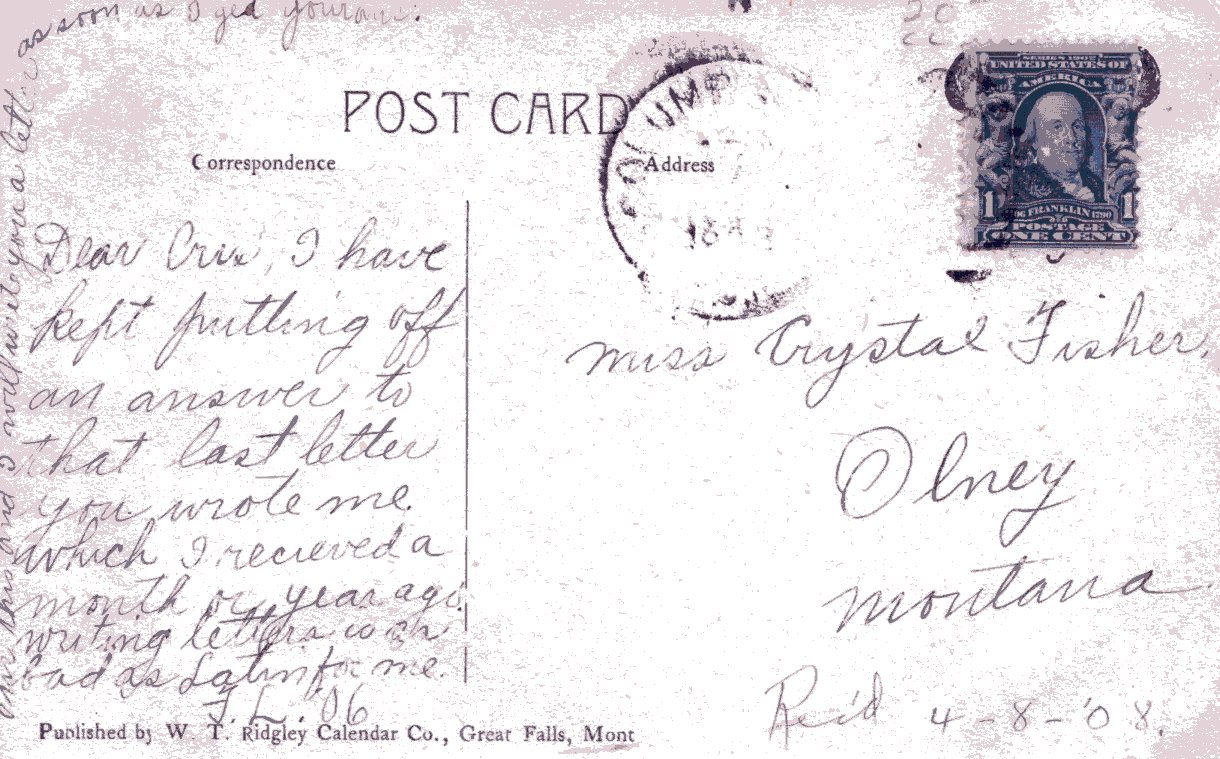 as soon as I get
POST CARD
Correspondence
Address
COLUMB
18
SERIES 1902
UNITED STATES OF
AMERICA
FRANKLIN 1790
POSTAGE
1 ONE CENT 1
Dear Cris, I have
kept putting off
an answer to
that last letter
you wrote me.
which I recieved a
month or year ago.
writing letters is as
bad as Latin for me.
F. L. '06
and I will write you a let.
Miss Crystal Fisher,
Olney
Montana
Rec'd 4-8-'08.
Published by W. T. Ridgley Calendar Co., Great Falls, Mont